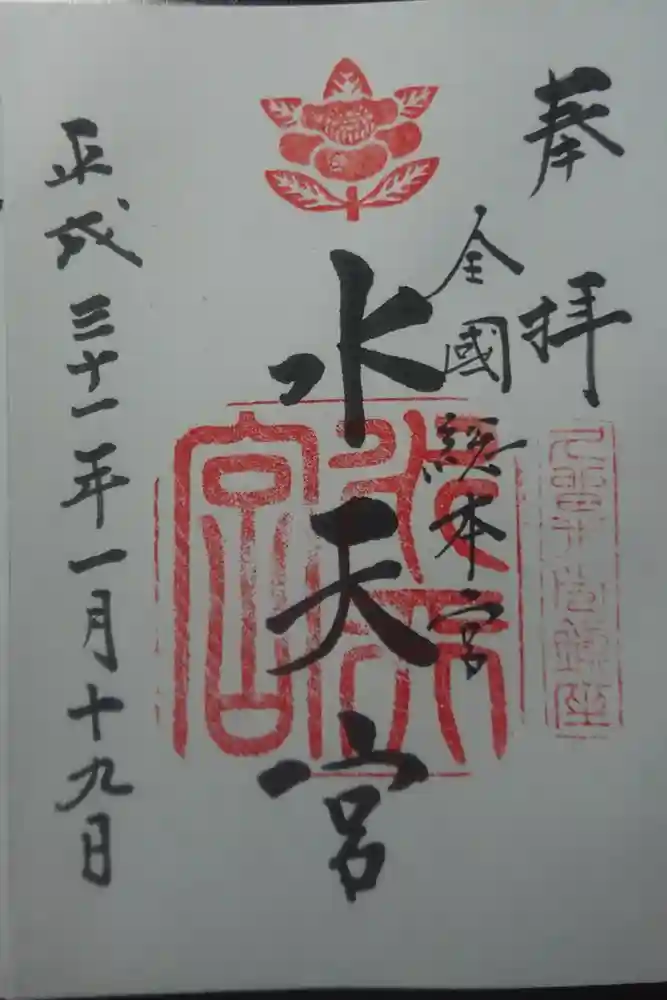 奉拝
全國総本宮
水天宮
平成三十一年一月十九日
水天宮